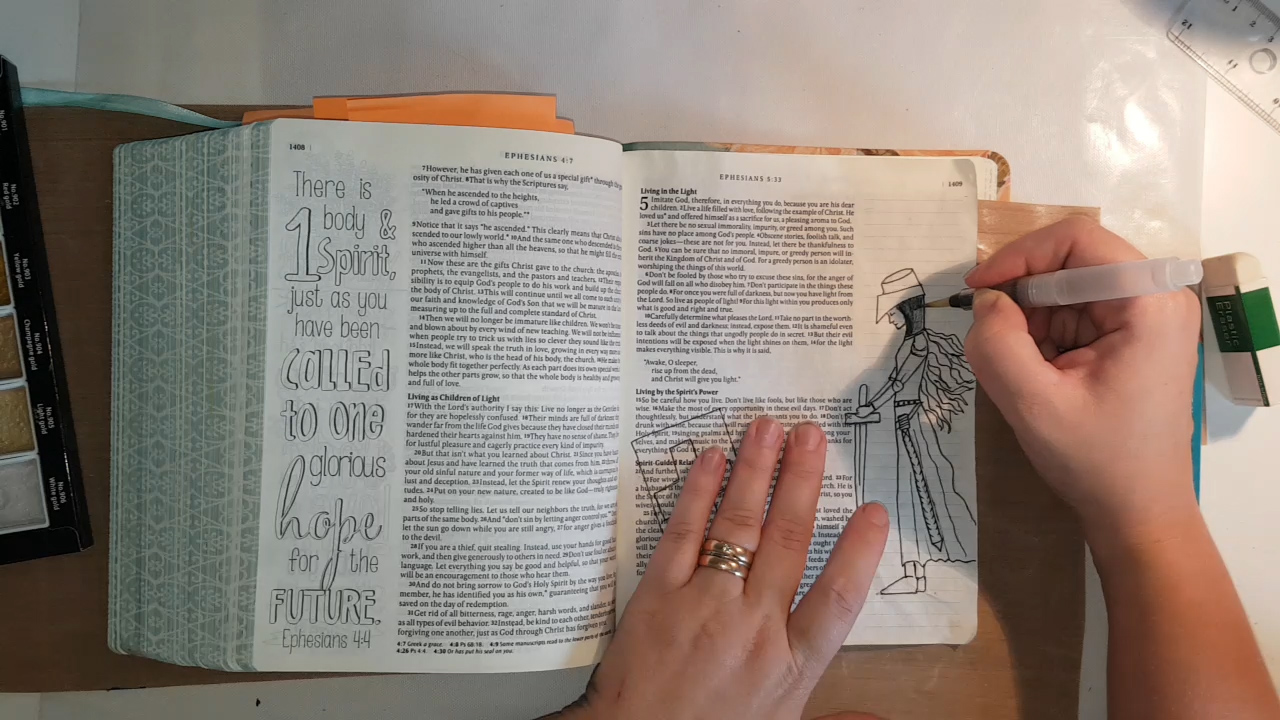 1408
EPHESIANS 4:7
There is
1 body &
Spirit,
just as you
have been
called
to one
glorious
hope
for the
FUTURE.
Ephesians 4:4
7However, he has given each one of us a special gift* through the
osity of Christ. 8That is why the Scriptures say,
"When he ascended to the heights,
he led a crowd of captives
and gave gifts to his people."*
9Notice that it says "he ascended." This clearly means that Christ
scended to our lowly world.* 10And the same one who descended is the
who ascended higher than all the heavens, so that he might fill the
universe with himself.
11Now these are the gifts Christ gave to the church: the
prophets, the evangelists, and the pastors and teachers. 12Their
sibility is to equip God's people to do his work and build up the
the body of Christ. 13This will continue until we all come to
our faith and knowledge of God's Son that we will be mature in the
measuring up to the full and complete standard of Christ.
14Then we will no longer be immature like children. We won't be
and blown about by every wind of new teaching. We will not be
when people try to trick us with lies so clever they sound like the
15Instead, we will speak the truth in love, growing in every way
more like Christ, who is the head of his body, the church. 16He
whole body fit together perfectly. As each part does its own special
helps the other parts grow, so that the whole body is healthy and
and full of love.
Living as Children of Light
17With the Lord's authority I say this: Live no longer as the Gentiles
for they are hopelessly confused. 18Their minds are full of darkness;
wander far from the life God gives because they have closed their
hardened their hearts against him. 19They have no sense of shame. They
for lustful pleasure and eagerly practice every kind of impurity.
20But that isn't what you learned about Christ. 21Since you have
about Jesus and have learned the truth that comes from him, 22throw
your old sinful nature and your former way of life, which is
lust and deception. 23Instead, let the Spirit renew your thoughts and
tudes. 24Put on your new nature, created to be like God—truly
and holy.
25So stop telling lies. Let us tell our neighbors the truth, for we are
parts of the same body. 26And "don't sin by letting anger control you."*
let the sun go down while you are still angry, 27for anger gives a
to the devil.
28If you are a thief, quit stealing. Instead, use your hands for good
work, and then give generously to others in need. 29Don't use foul or
language. Let everything you say be good and helpful, so that your
will be an encouragement to those who hear them.
30And do not bring sorrow to God's Holy Spirit by the way you
member, he has identified you as his own,* guaranteeing that you will
saved on the day of redemption.
31Get rid of all bitterness, rage, anger, harsh words, and slander,
as all types of evil behavior. 32Instead, be kind to each other,
forgiving one another, just as God through Christ has forgiven
4:7 Greek a grace. 4:8 Ps 68:18. 4:9 Some manuscripts read to the lower parts of the
4:26 Ps 4:4. 4:30 Or has put his seal on you.
EPHESIANS 5:33
1409
Living in the Light
5 Imitate God, therefore, in everything you do, because you are his dear
children. 2Live a life filled with love, following the example of Christ. He
loved us* and offered himself as a sacrifice for us, a pleasing aroma to God.
3Let there be no sexual immorality, impurity, or greed among you. Such
sins have no place among God's people. 4Obscene stories, foolish talk, and
coarse jokes—these are not for you. Instead, let there be thankfulness to
God. 5You can be sure that no immoral, impure, or greedy person will in-
herit the Kingdom of Christ and of God. For a greedy person is an idolater,
worshiping the things of this world.
6Don't be fooled by those who try to excuse these sins, for the anger of
God will fall on all who disobey him. 7Don't participate in the things these
people do. 8For once you were full of darkness, but now you have light from
the Lord. So live as people of light! 9For this light within you produces only
what is good and right and true.
10Carefully determine what pleases the Lord. 11Take no part in the worth-
less deeds of evil and darkness; instead, expose them. 12It is shameful even
to talk about the things that ungodly people do in secret. 13But their evil
intentions will be exposed when the light shines on them, 14for the light
makes everything visible. This is why it is said,
"Awake, O sleeper,
rise up from the dead,
and Christ will give you light."
Living by the Spirit's Power
15So be careful how you live. Don't live like fools, but like those who are
wise. 16Make the most of every opportunity in these evil days. 17Don't act
thoughtlessly, but understand what the Lord wants you to do. 18Don't be
drunk with wine, because that will
Holy Spirit, 19singing psalms and
selves, and making music to the
everything to God the
Spirit-Guided
21And further,
22For wives,
Plastic
Eraser
No.901
No.902
Red gold
No.903
Yellow gold
No.904
Champagne gold
No.905
Light gold
No.906
White gold